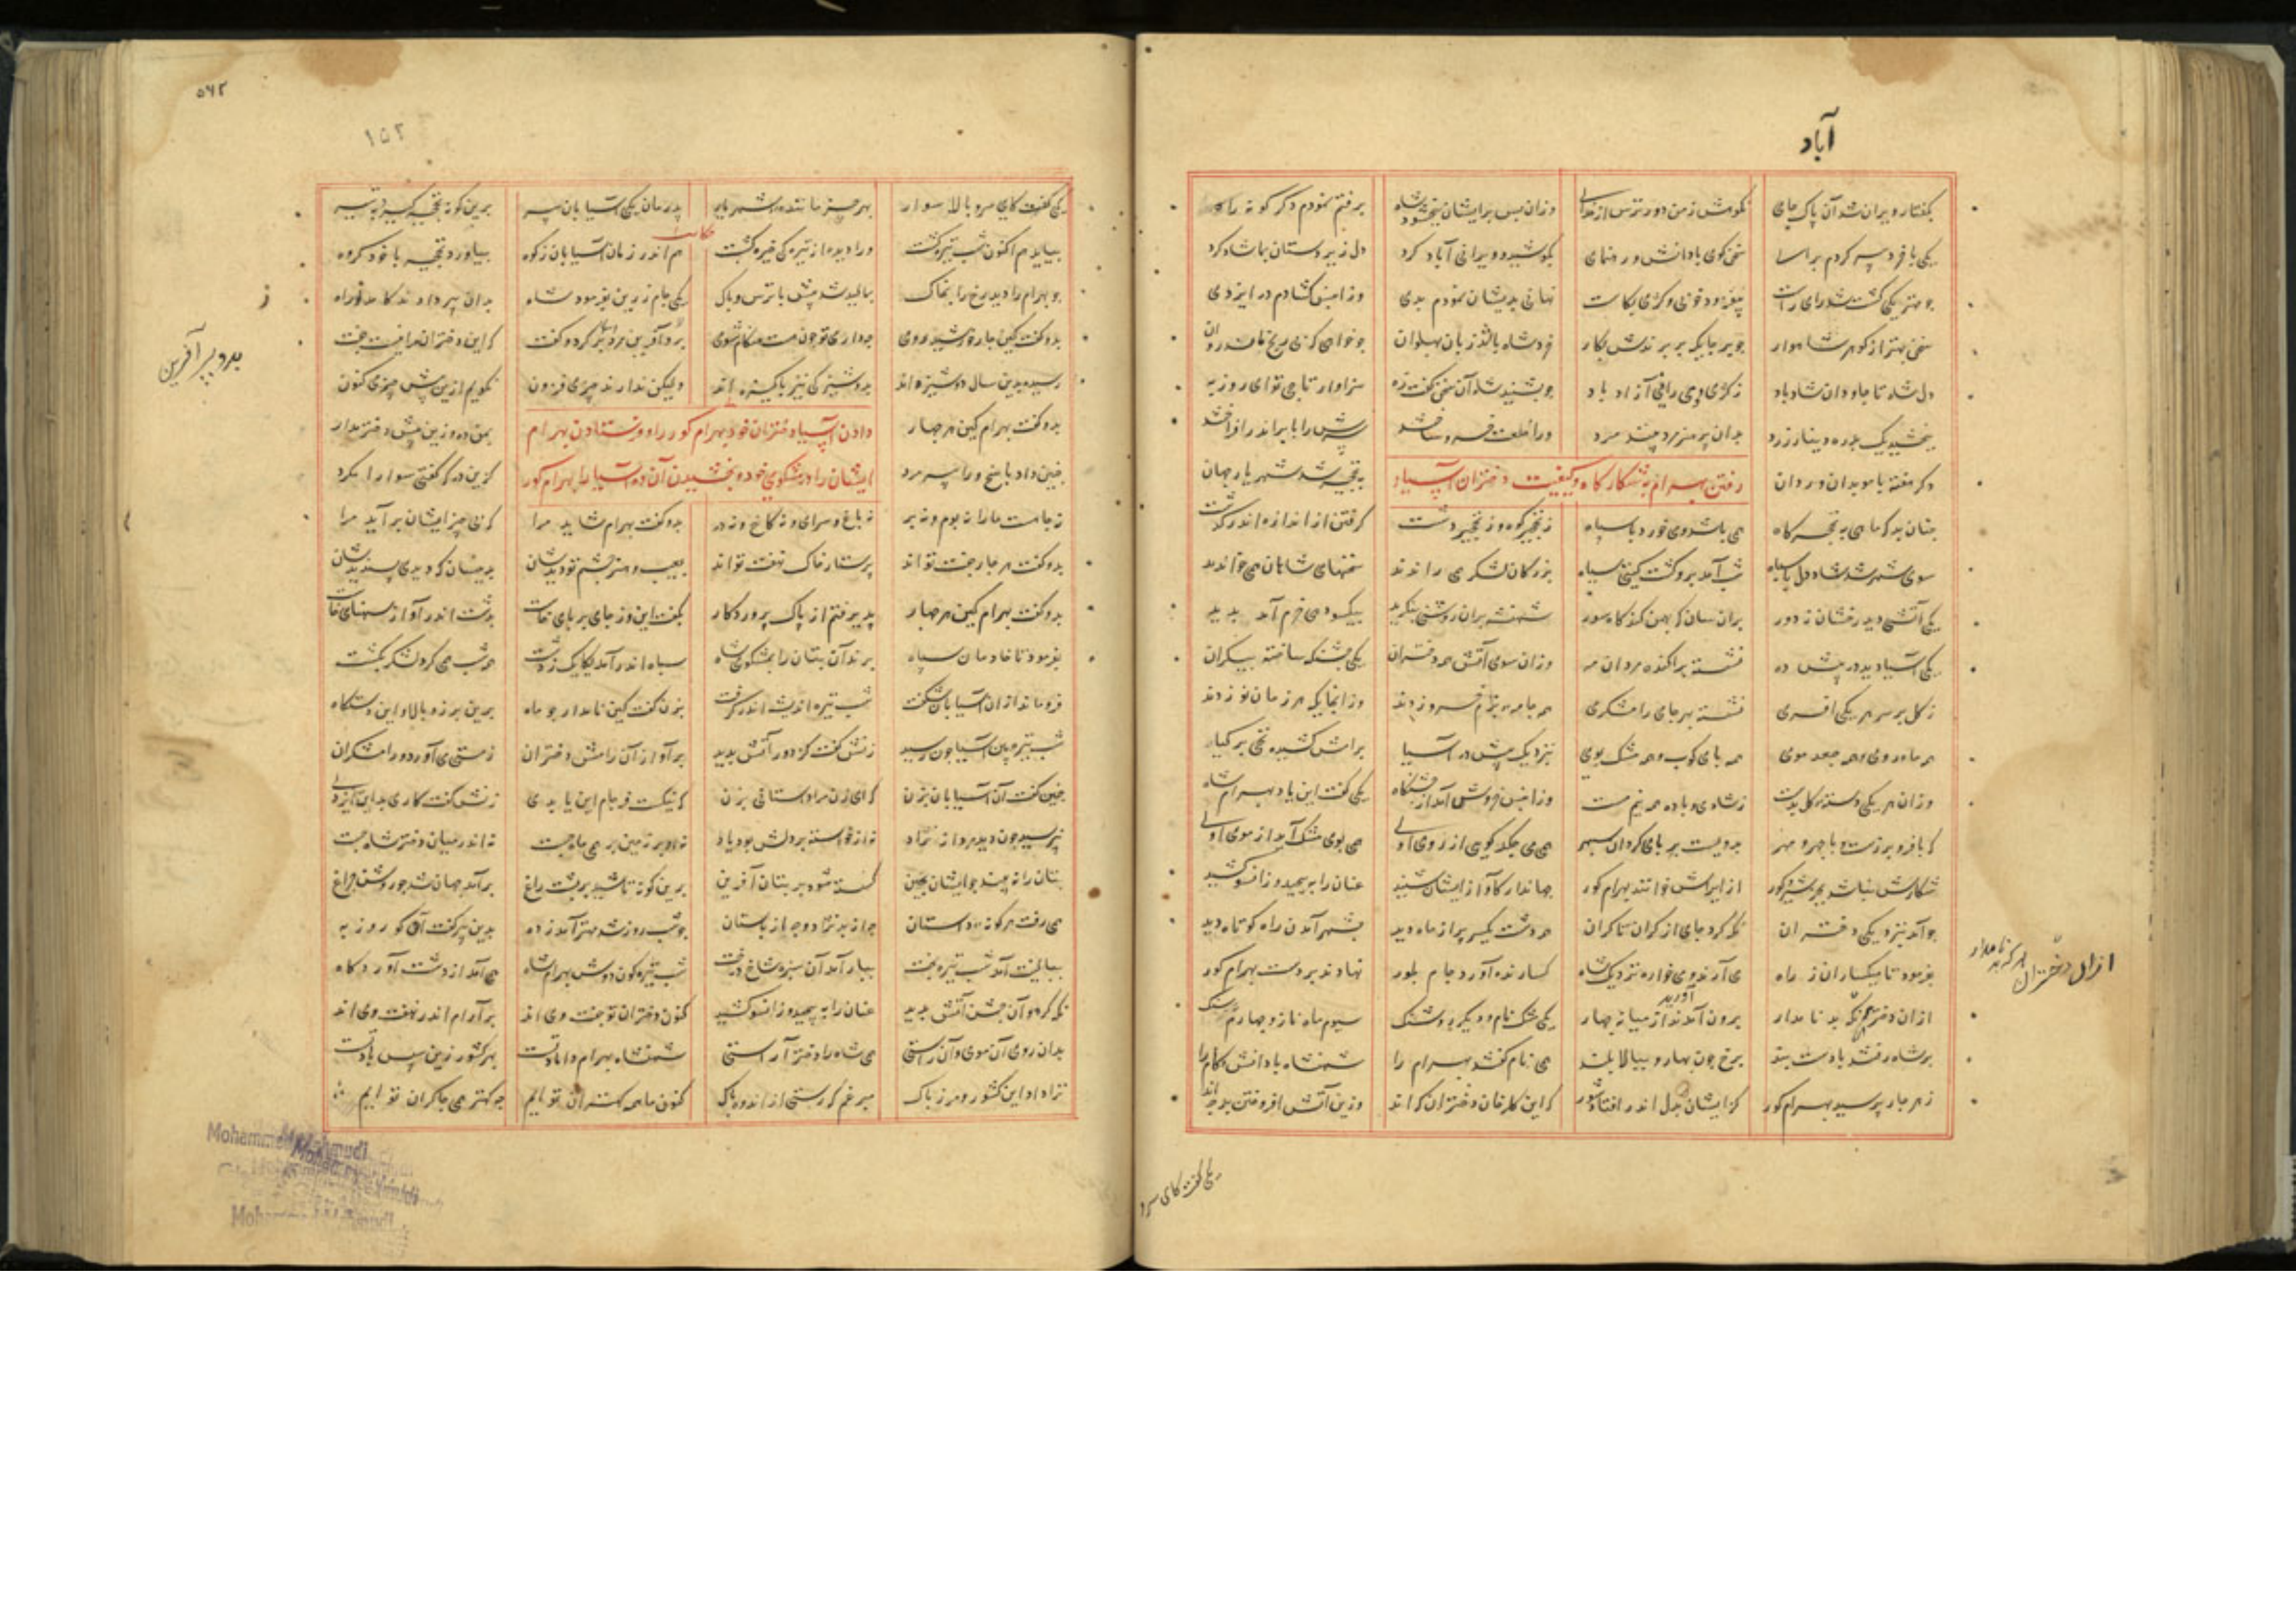 آباد
بگفتار ویران شد آن پاک جای نکوهش ز من دور و ترس از خدای وزان پس بر ایشان ببخشود شاه برفتم نمودم دگر گونه راه
یکی با خرد پیر کردم بر اسا سخن کوی با دانش و رهنمای بکوشید و ویرانی آباد کرد دل زیر دستان بما شاد کرد
جو مهتر یکی کشت شد رای راست بیفزود خوبی و کژی بکاست نهانی بدیشان نمودم بدی وزان پس کشادم در ایزدی
سخن بهتر از کوهر شاهوار جو بر جایکه بر برندش بکار خرد شاه باید زبان بهلوان جو خواهی که بی رنج ماند روان
دل شاه تا جاودان شاد باد ز کژی و ویرانی آزاد باد جو بشنید شاه آن سخن گفت زه سزاوار تاجی تو ای روزبه
ببخشید یک بدره دینار زرد بدان پر هنر مرد ورا خلعت خسروی ساختند سرش را بابر اندر افراختند
دگر هفته با موبدان و ردان بنخجیر شد شهریار جهان
رفتن بهرام بشکارگاه و کیفیت دختران آسیابان
جنان بد که ماهی به نخجیرگاه همی باشد و می خورد با سپاه ز نخجیر کوه و ز نخجیر دشت گرفتن از اندازه اندر گذشت
سوی شهر شد شاد دل با سپاه شب آمد برو گشت گیتی سیاه بزرگان لشکر همی راندند سخنهای شاهان همی خواندند
یکی آتشی دید رخشان ز دور بران سان که بهمن کند گاه سور شهنشه بران روشنی بنگرید بیکسو دهی خرم آمد پدید
یکی آسیا دید در پیش ده نشسته پراکنده مردان مه وزان سوی آتش همه دختران یکی جشنگه ساخته بیکران
ز گل بر سر هر یکی افسری نشسته بهر جای رامشگری همه جامه رزم خسرو زدند وز انجایگه هر زمان نو زدند
همه ماه روی و همه جعد موی همه پای کوب و همه مشک بوی بنزدیک پیش در آسیا برامش کشیده نخی بر گیا
وزان هر یکی دسته گل بدست ز شادی و باده همه نیم مست وزان پس خروش آمد از جشنگاه یکی گفت این یاد بهرام شاه
که با فر و برزست و با چهر و مهر بدویست بر پای گردان سپهر همی می چکد گویی از روی اوی همی بوی مشک آید از موی اوی
شکارش نباشد بجز شیر و گور ازیراش خوانند بهرام گور جهاندار کاواز ایشان شنید عنان را بپیچید و زانسو کشید
جو آمد بنزدیکی دختران نگه کرد جای از کران تا کران همه دشت یکسر پر از ماه دید بشهر آمدن راه کوتاه دید
بفرمود تا میگساران ز راه می آرند و میخواره نزدیک شاه گسارنده آورد جام بلور نهادند بر دست بهرام گور
ازان دختران آنکه بد نامدار برون آمدند از میانه چهار یکی مشک نام و دیگر سیسنک سیوم ماه نار و چهارم سنک
بر شاه رفتند با دست بند برخ چون بهار و ببالا بلند همی نام گفتند بهرام را شهنشاه با دانش و کام را
ز هر چار پرسید بهرام گور کزیشان بدل اندر افتاد شور که این گلرخان دختران که اند وزین آتش افروختن بر چه اند
ازان دختران هر که بد نامدار
یکی گفت کای سرو
۵۶۲
۱۵۲
یکی گفت کای سرو بالا سوار بهر چیز ماننده شهریار پدرمان یکی آسیابان پیر برین کوه نخجیر گیرد بتیر
بیاید هم اکنون شب تیره گشت ورا دیده از تیرگی خیره گشت هم اندر زمان آسیابان ز کوه بیاورد نخجیر با خود گروه
جو بهرام را دید رخ را بخاک بمالید شد پیش با ترس و باک یکی جام زرین بفرمود شاه بدان پیر دادند کامد ز راه
بدو گفت کین چار خورشید روی چه داری چو هست هنگام شوی برو آفرین کرد و گفت که این دختران مرا نیست جفت
رسیده بدین سال دوشیزه اند بدوشیزگی نیز پاکیزه اند ولیکن ندارند چیزی فزون نگویم ازین پیش چیزی کنون
بدو گفت بهرام کین هر چهار بمن ده وزین پیش دختر مدار
دادن آسیابان دختران خود بهرام گور را و فرستادن بهرام
چنین داد پاسخ ورا پیر مرد کزین در که گفتی سوارا مگرد
ایشان را در مشکوی خود و بخشیدن آن ده آسیا را بهرام گور
نه جا هست ما را نه بوم و نه بر نه باغ و سرای و نه کاخ و نه در بدو گفت بهرام شاید مرا که بی چیز ایشان برآید مرا
بدو گفت هر چار جفت تو اند پرستار خاک نهفت تو اند بعیب و هنر چشم تو دیدشان بدینسان که دیدی پسندیدشان
بدو گفت بهرام کین هر چهار پذیرفتم از پاک پروردگار بگفت این و ز جای بر پای خاست بدشت اندر آواز اسپان خاست
بفرمود تا خادمان سپاه برند آن بتان را بمشکوی شاه سپاه اندر آمد یکایک ز دشت همه شب همی گرد لشکر گذشت
فرو ماند ازان آسیابان شگفت شب تیره اندیشه اندر گرفت بزن گفت کین نامدار چو ماه برین برز و بالا و این دستگاه
شب تیره بدین آسیا چون رسید زنش گفت کز دور آتش بدید بر آواز آن رامش دختران ز مستی می آورد و رامشگران
چنین گفت آن آسیابان بزن که ای زن مرا داستانی بزن که نیکست فرجام این یا بدی زنش گفت کاری بد این ایزدی
نپرسید چون دید مرد از نژاد نه از خواسته بر دلش بود یاد نه او بر زمین بر همی ماه جست نه اندر میان دختر شاه جست
بتان را نه بیند چو ایشان بچین گسسته شود بر بتان آفرین برین گونه تا شید بر پشت راغ برآمد جهان شد چو روشن چراغ
همی رفت هر گونه داستان چو شب روز شد مهتر آمد ز ده بدین پیر گفت ای کو روزبه
ببالینت آمد شب تیره بخت ببار آمد آن سبز شاخ درخت شب تیره گون دوش بهرام شاه همی آمد از دشت آورد گاه
نگه کرد و آن جشن آتش بدید عنان را بپیچید و زانسو کشید کنون دختران تو جفت وی اند بر آرام اندر نهفت وی اند
بدان روی آن موی و آن راستی همی شاه را دختر آراستی شهنشاه بهرام داماد تست بهر کشور زین پس یاد تست
ترا داد این کشور و مرز پاک مبر غم که رستی از اندوه و باک کنون ما همه کهتران توایم چه کهتر همی چاکران توایم
Mohammed Mahmudi